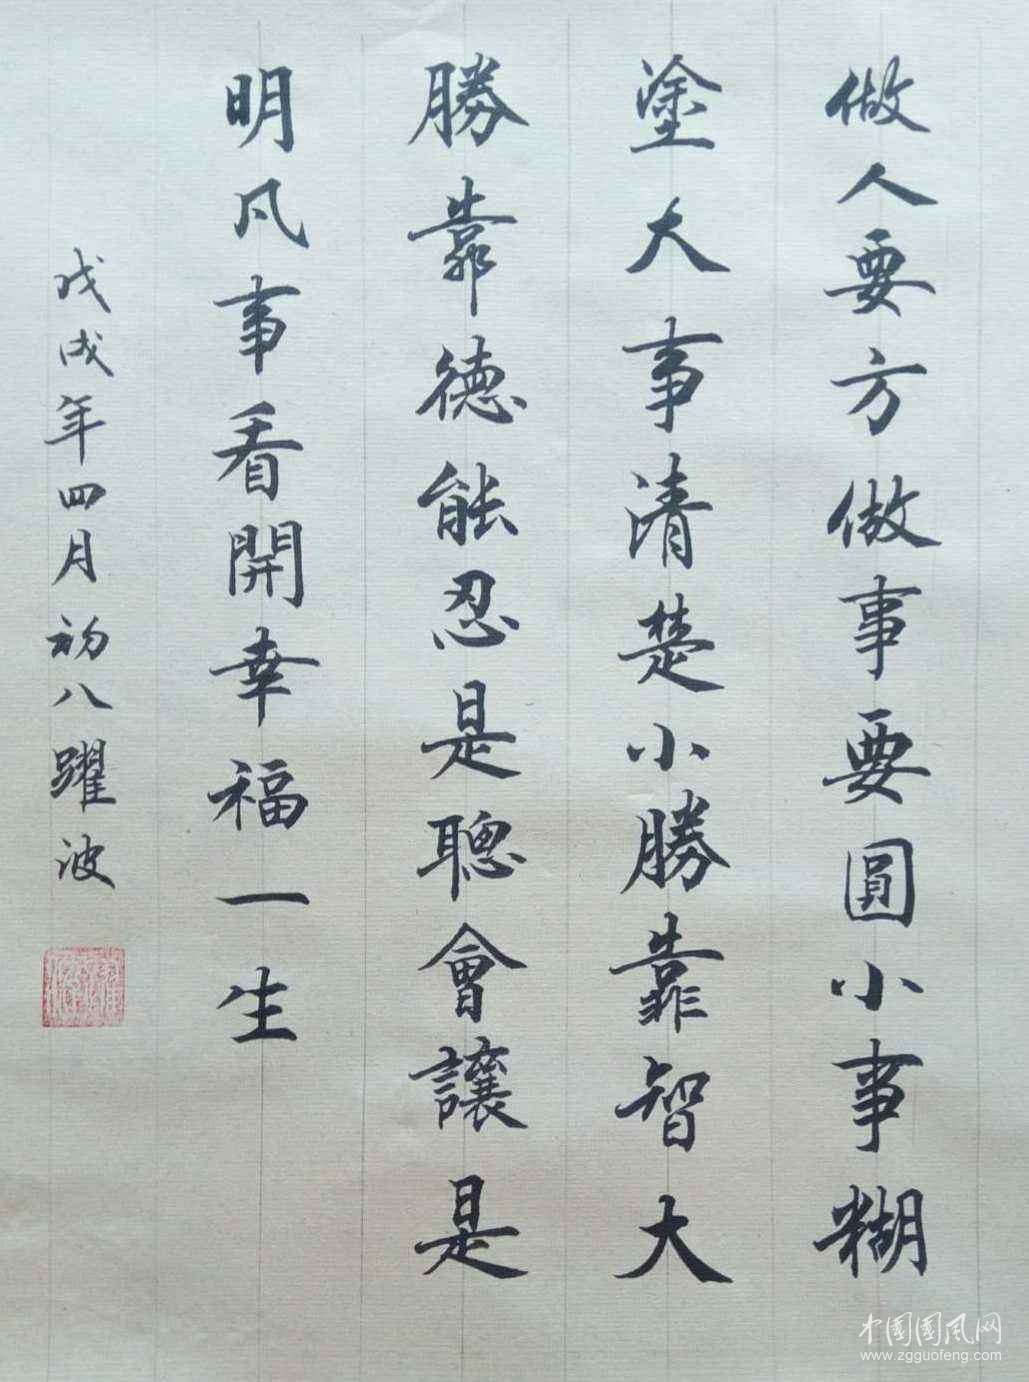 做人要方做事要圓小事糊
塗大事清楚小勝靠智大
勝靠德能忍是聰會讓是
明凡事看開幸福一生
戊戌年四月初八躍波
中国国风网
www.zgguofeng.com